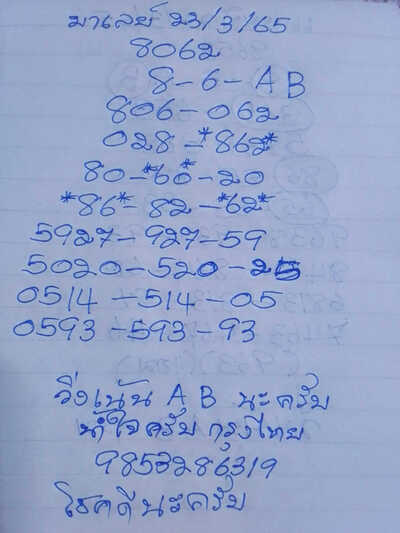 มาเลย์ 23/3/65
8062
8-6-AB
806-062
028-*862*
80-*60*-20
*86*-82-*62*
5927-927-59
5020-520-25
0514-514-05
0593-593-93
วิ่งเน้น AB นะครับ
น้ำใจครับ กรุงไทย
9853286319
โชคดีนะครับ